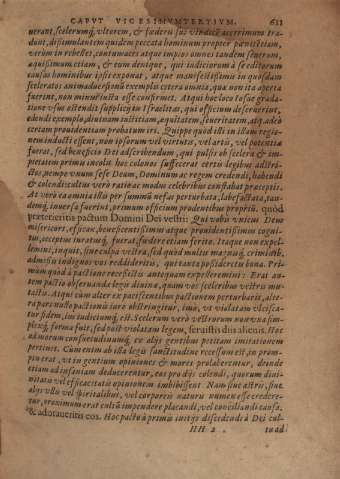 CAPVT VICESIMVMTERTIVM. 611
uerant, scelerumq́; vltorem, & fœderis sui vindicē acerrimum tra-
dunt, dissimulantem quidem peccata hominum propter pœnitentiam,
verùm in rebelles, contumaces atque impios omnes tandem seuerum,
æquissimum etiam, & eum denique, qui iudiciorum à se editorum
causas hominibus ipse exponat, atque manifestissimis in quosdam
sceleratos animaduersionū exemplis cetera omnia, quæ non ita aperta
fuerint, non minùs iusta esse confirmet. Atqui hoc loco Iosue grada-
tione vsus ostendit supplicij in Israelitas, qui officium deseruerint,
edendi exemplo, diuinam iustitiam, æquitatem, seueritatem, atq́; adeò
certam prouidentiam probatum iri. Quippe quòd illi in illam regio-
nem inducti essent, non ipsorum vel virtutis, vel artis, vel potentiæ
fuerat, sed beneficio Dei adscribendum, qui pulsis ob scelera & im-
pietatem primis incolis hos colonos suffecerat certis legibus adstri-
ctos, nempe vnum sese Deum, Dominum ac regem credendi, habendi
& colendi cultus verò ratione ac modus celebribus constabat præceptis.
At verò ea omnia istis per summū nefas perturbata, labefactata, tan-
demq́; inuersa fuerint, primum officium prudentibus proprijs. quòd
præterieritis pactum Domini Dei vestri: Qui vobis vnicus Deus
misericors, efficax, beneficentissimus atque prouidentissimus cogni-
tus, acceptus iuratusq́; fuerat, fœdere etiam ferito. Itaque non expel-
lemini, inquit, sine culpa vestra, sed quòd multis magnisq́; criminib.
admissis indignos vos reddideritis, quæ tanta possideretis bona. Pri-
mùm quòd à pactione recessistis antequam expelleremini: Erat au-
tem pactio obseruandæ legis diuinæ, quàm vos sceleribus vestris mu-
tastis. Atqui cùm alter ex paciscentibus pactionem perturbaris, alte-
ra pars nulla pactionis iure obstringitur, imò, vt violatam vlcisca-
tur fidem, ius iudiciumq́; est. Scelerum verò vestrorum non vna sim-
plexq́; forma fuit, sed post violatam legem, seruistis diis alienis. Hoc
ad morum consuetudinumq́; ex alijs gentibus petitam imitationem
pertinet. Cùm enim ab ista legis sanctitudine recessum est, in prom-
ptu erat, vt in gentium opiniones & mores prolaberentur, deinde
etiam ad insaniam deducerentur, eos pro dijs colendi, quorum diui-
nitatis vel efficacitatis opinionem imbibissent. Nam siue astris, siue
alijs vllis vel spiritalibus, vel corporeis naturis numen esse credere-
tur, proximum erat cultū impendere placandi, vel conciliandi causa.
& adoraueritis eos. Hoc pacto à primis initijs discedendi à Dei cul-
HH 2 tu ad